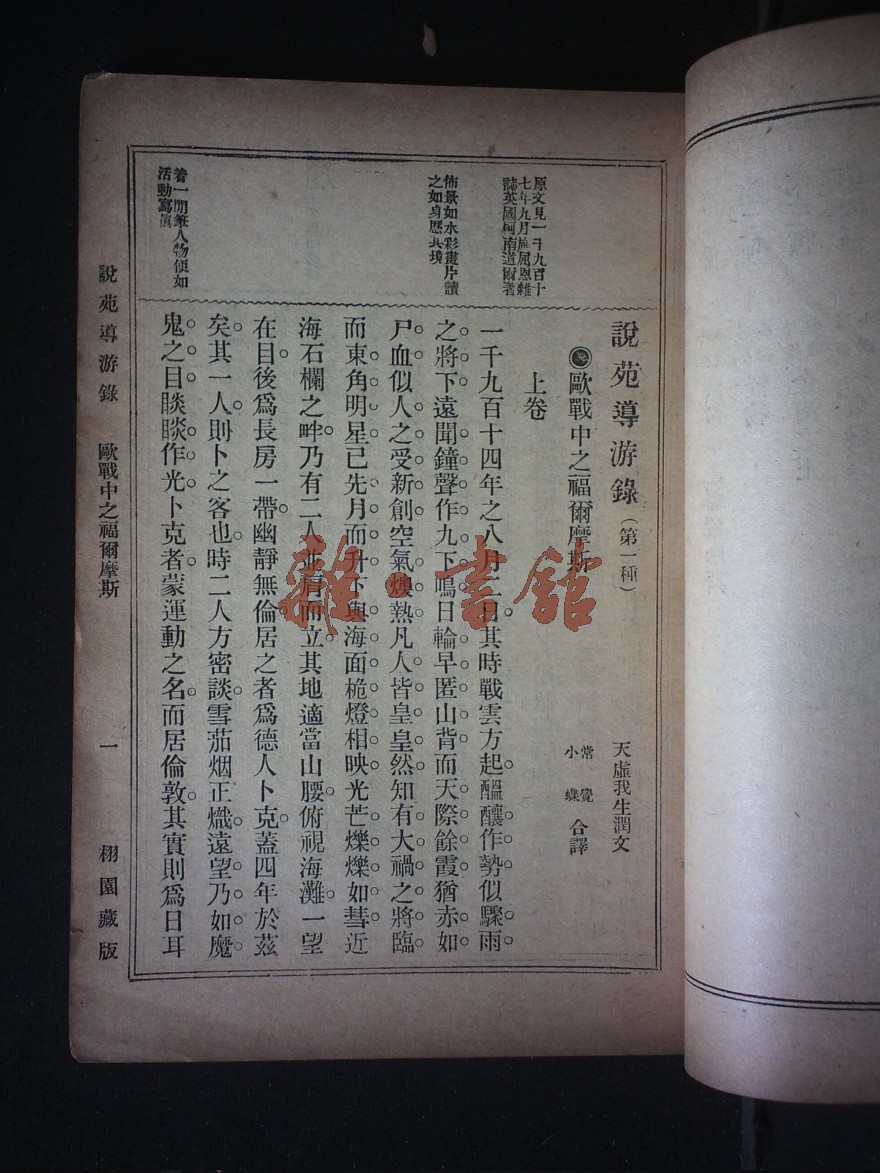 說苑導游錄（第一種）　天虛我生潤文
歐戰中之福爾摩斯　常覺　小蝶　合譯
上卷
一千九百十四年之八月二日其時戰雲方起醞釀作勢似驟雨
之將下遠聞鐘聲作九下鳴日輪早匿山背而天際餘霞猶赤如
尸血似人之受新創空氣燠熱凡人皆皇皇然知有大禍之將臨
而東角明星已先月而升下與海面桅燈相映光芒爍爍如彗近
海石欄之畔乃有二人並肩而立其地適當山腰俯視海灘一望
在目後爲長房一帶幽靜無倫居之者爲德人卜克蓋四年於茲
矣其一人則卜之客也時二人方密談雪茄烟正熾遠望乃如魔
鬼之目睒睒作光卜克者蒙運動之名而居倫敦其實則爲日耳
原文見一千九百十
七年九月施屈恩雜
誌英國柯南道爾著
佈景如水彩畫片讀
之如身歷其境
着一閒筆人物便如
活動寫真
說苑導游錄　歐戰中之福爾摩斯　一　栩園藏版
雜·書館